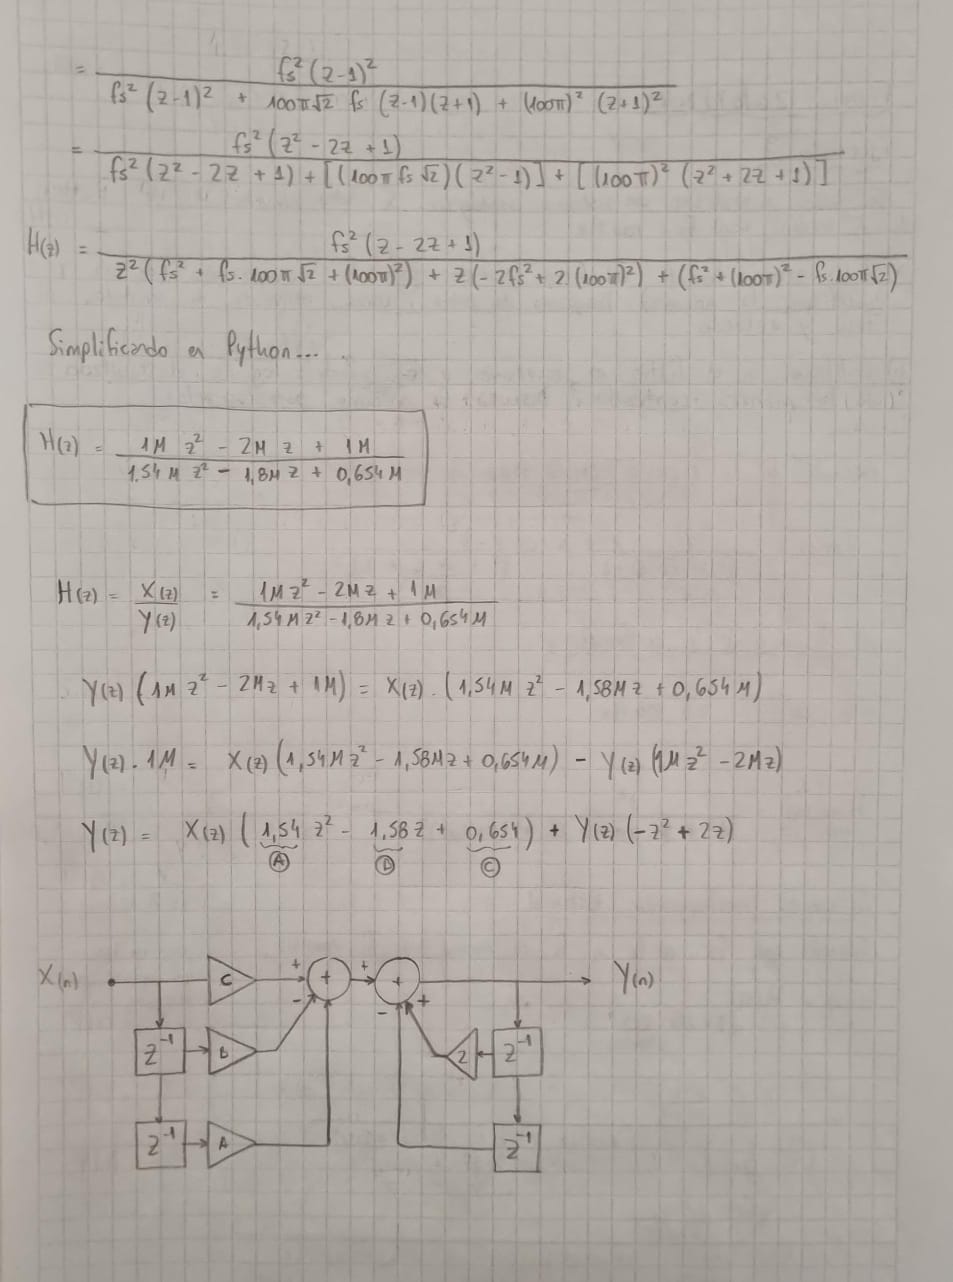 = fs² (z-1)² / fs² (z-1)² + 100π√2 fs (z-1)(z+1) + (100π)² (z+1)²
= fs² (z² - 2z + 1) / fs² (z² - 2z + 1) + [(100π fs √2)(z² - 1)] + [(100π)² (z² + 2z + 1)]
H(z) = fs² (z - 2z + 1) / z² (fs² + fs. 100π√2 + (100π)²) + z (- 2fs² + 2 (100π)²) + (fs² + (100π)² - fs.100π√2)
Simplificando en Python... .
H(z) = 1M z² - 2M z + 1M / 1.54 M z² - 1,8M z + 0,654 M
H(z) = X(z) / Y(z) = 1M z² - 2M z + 1M / 1,54 M z² - 1,8M z + 0,654 M
Y(z) (1M z² - 2Mz + 1M) = X(z) . (1,54M z² - 1,58M z + 0,654 M)
Y(z) . 1M = X(z) (1,54M z² - 1,58Mz + 0,654M) - Y(z) (1M z² - 2Mz)
Y(z) = X(z) (1,54 z² - 1,58 z + 0,654) + Y(z) (-z² + 2z)
A B C
X(n) C + + + + Y(n)
- - +
z⁻¹ B 2 z⁻¹
z⁻¹ A z⁻¹